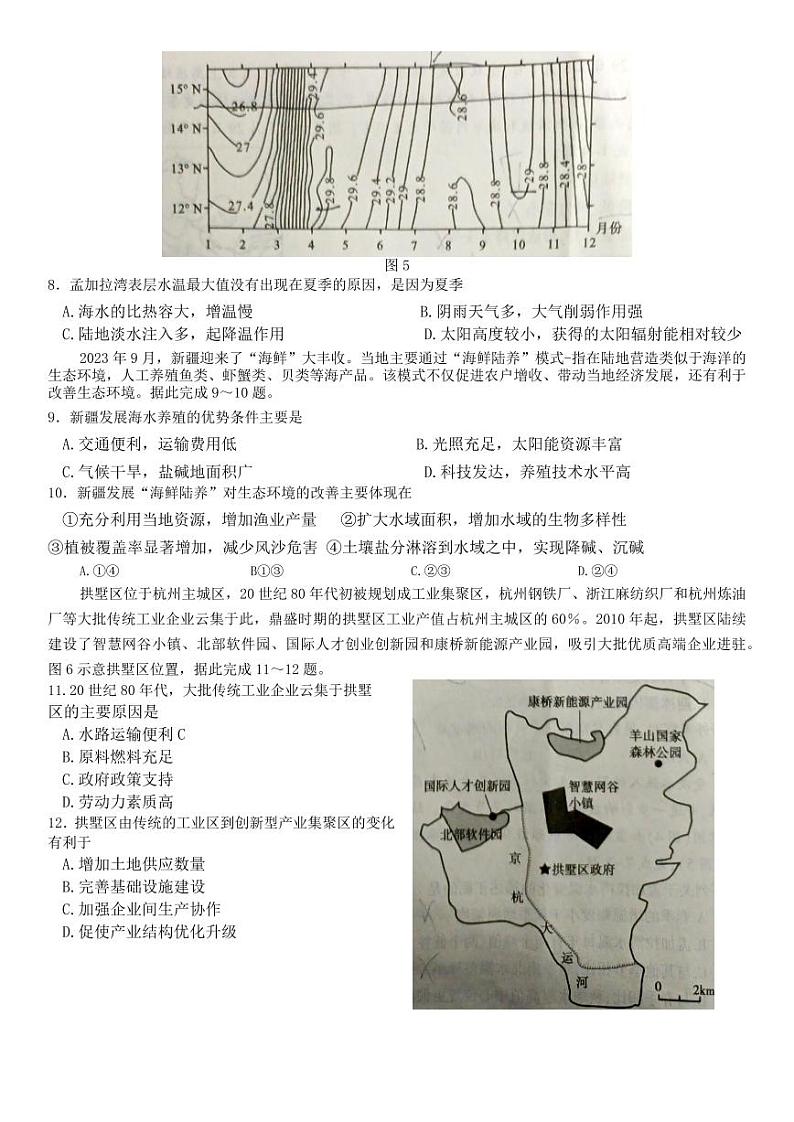 15° N
14° N
13° N
12° N
26.8
27
27.4
27.8
29.4
29.6
29.8
29.6
29.4
29.2
29
28.8
28.6
28.6
28.8
29
28.8
28.4
28
1 2 3 4 5 6 7 8 9 10 11 12 月份
图 5
8．孟加拉湾表层水温最大值没有出现在夏季的原因，是因为夏季
A.海水的比热容大，增温慢 B.阴雨天气多，大气削弱作用强
C.陆地淡水注入多，起降温作用 D.太阳高度较小，获得的太阳辐射能相对较少
2023 年 9 月，新疆迎来了“海鲜”大丰收。当地主要通过“海鲜陆养”模式-指在陆地营造类似于海洋的
生态环境，人工养殖鱼类、虾蟹类、贝类等海产品。该模式不仅促进农户增收、带动当地经济发展，还有利于
改善生态环境。据此完成 9～10 题。
9．新疆发展海水养殖的优势条件主要是
A.交通便利，运输费用低 B.光照充足，太阳能资源丰富
C.气候干旱，盐碱地面积广 D.科技发达，养殖技术水平高
10．新疆发展“海鲜陆养”对生态环境的改善主要体现在
①充分利用当地资源，增加渔业产量 ②扩大水域面积，增加水域的生物多样性
③植被覆盖率显著增加，减少风沙危害 ④土壤盐分淋溶到水域之中，实现降碱、沉碱
A.①④ B①③ C.②③ D.②④
拱墅区位于杭州主城区，20 世纪 80 年代初被规划成工业集聚区，杭州钢铁厂、浙江麻纺织厂和杭州炼油
厂等大批传统工业企业云集于此，鼎盛时期的拱墅区工业产值占杭州主城区的 60％。2010 年起，拱墅区陆续
建设了智慧网谷小镇、北部软件园、国际人才创业创新园和康桥新能源产业园，吸引大批优质高端企业进驻。
图 6 示意拱墅区位置，据此完成 11～12 题。
11.20 世纪 80 年代，大批传统工业企业云集于拱墅
区的主要原因是
A.水路运输便利 C
B.原料燃料充足
C.政府政策支持
D.劳动力素质高
12．拱墅区由传统的工业区到创新型产业集聚区的变化
有利于
A.增加土地供应数量
B.完善基础设施建设
C.加强企业间生产协作
D.促使产业结构优化升级
康桥新能源产业园
羊山国家
森林公园
国际人才创新园
智慧网谷
小镇
北部软件园
★拱墅区政府
京
杭
大
运
河
0 2km